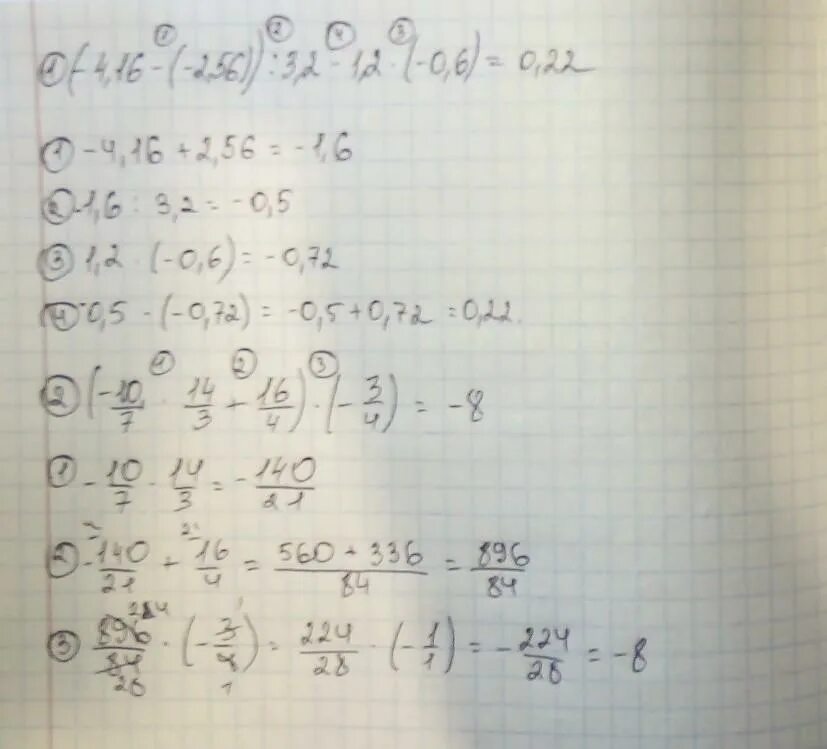 ① ② ④ ③
① (-4,16 - (-2,56)) : 3,2 - 1,2 · (-0,6) = 0,22
① -4,16 + 2,56 = -1,6
② -1,6 : 3,2 = -0,5
③ 1,2 · (-0,6) = -0,72
④ -0,5 - (-0,72) = -0,5 + 0,72 = 0,22.
① ② ③
② (-10/7 · 14/3 + 16/4) · (-3/4) = -8
① -10/7 · 14/3 = -140/21
② -140/21 + 16/4 = 560 + 336/84 = 896/84
③ 896/84 · (-3/4) = 224/28 · (-1/1) = -224/28 = -8